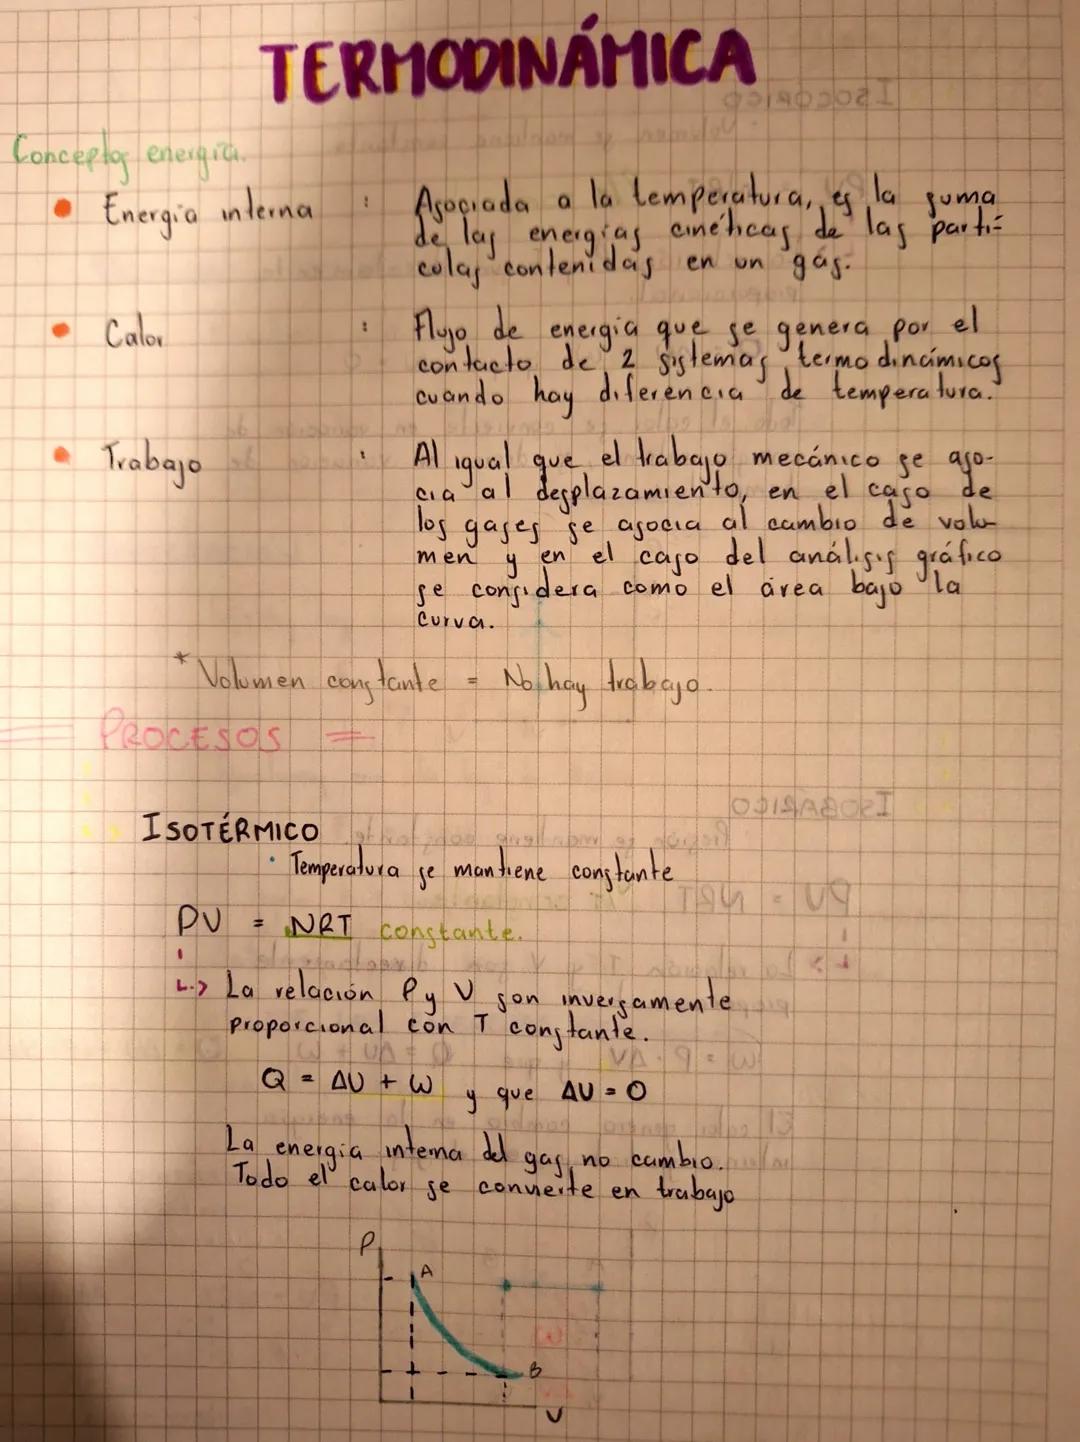 TERMODINÁMICA
Conceptos energía.
• Energía interna : Asociada a la temperatura, es la suma
de las energías cinéticas de las partí-
culas contenidas en un gas.
• Calor : Flujo de energía que se genera por el
contacto de 2 sistemas termodinámicos
cuando hay diferencia de temperatura.
• Trabajo : Al igual que el trabajo mecánico se aso-
cia al desplazamiento, en el caso de
los gases se asocia al cambio de volu-
men y en el caso del análisis gráfico
se considera como el área bajo la
curva.
* Volumen constante = No hay trabajo.
PROCESOS
ISOTÉRMICO
• Temperatura se mantiene constante
PV = NRT constante.
↳ La relación P y V son inversamente
proporcional con T constante.
Q = ΔU + W y que ΔU = 0
La energía interna del gas no cambio.
Todo el calor se convierte en trabajo
P
A
B
V